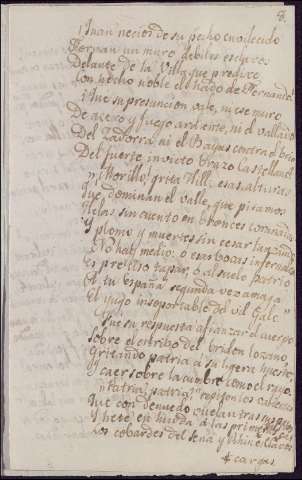 8.
¡Quan necios de su pecho enardecido
Forman un muro debiles esclavos
Delante de la Villa que
Con pecho noble el hado de Fernando!
¡Que su presuncion vale, ni ese muro
De acero y fuego ardiente, ni el vallado
Del Zadorra, ni el Bayas contra el brio
Del fuerte, invicto brazo Castellano!
"¡Morillo! grita Hill, esas alturas
Que dominan el valle, que pisamos
sin cuento en bronces coronadas
Y plomo y muertes sin cesar lanzando
No hay medio: o esas bocas infernales
Es preciso tapar, o al suelo patrio
A tu España segunda vez amaga
El yugo insoportable del vil Galo."
Fue su respuesta afianzar el cuerpo
Sobre el estribo del bridon lozano,
Gritando patria á su ligera hueste,
Y caer sobre la cumbre como el rayo.
"Patria, patria", repiten los
Que con denuedo vuelan tras sus pasos
Y hete en huida á las primeras
Los cobardes del Sena y Rhin esclavos
cargas